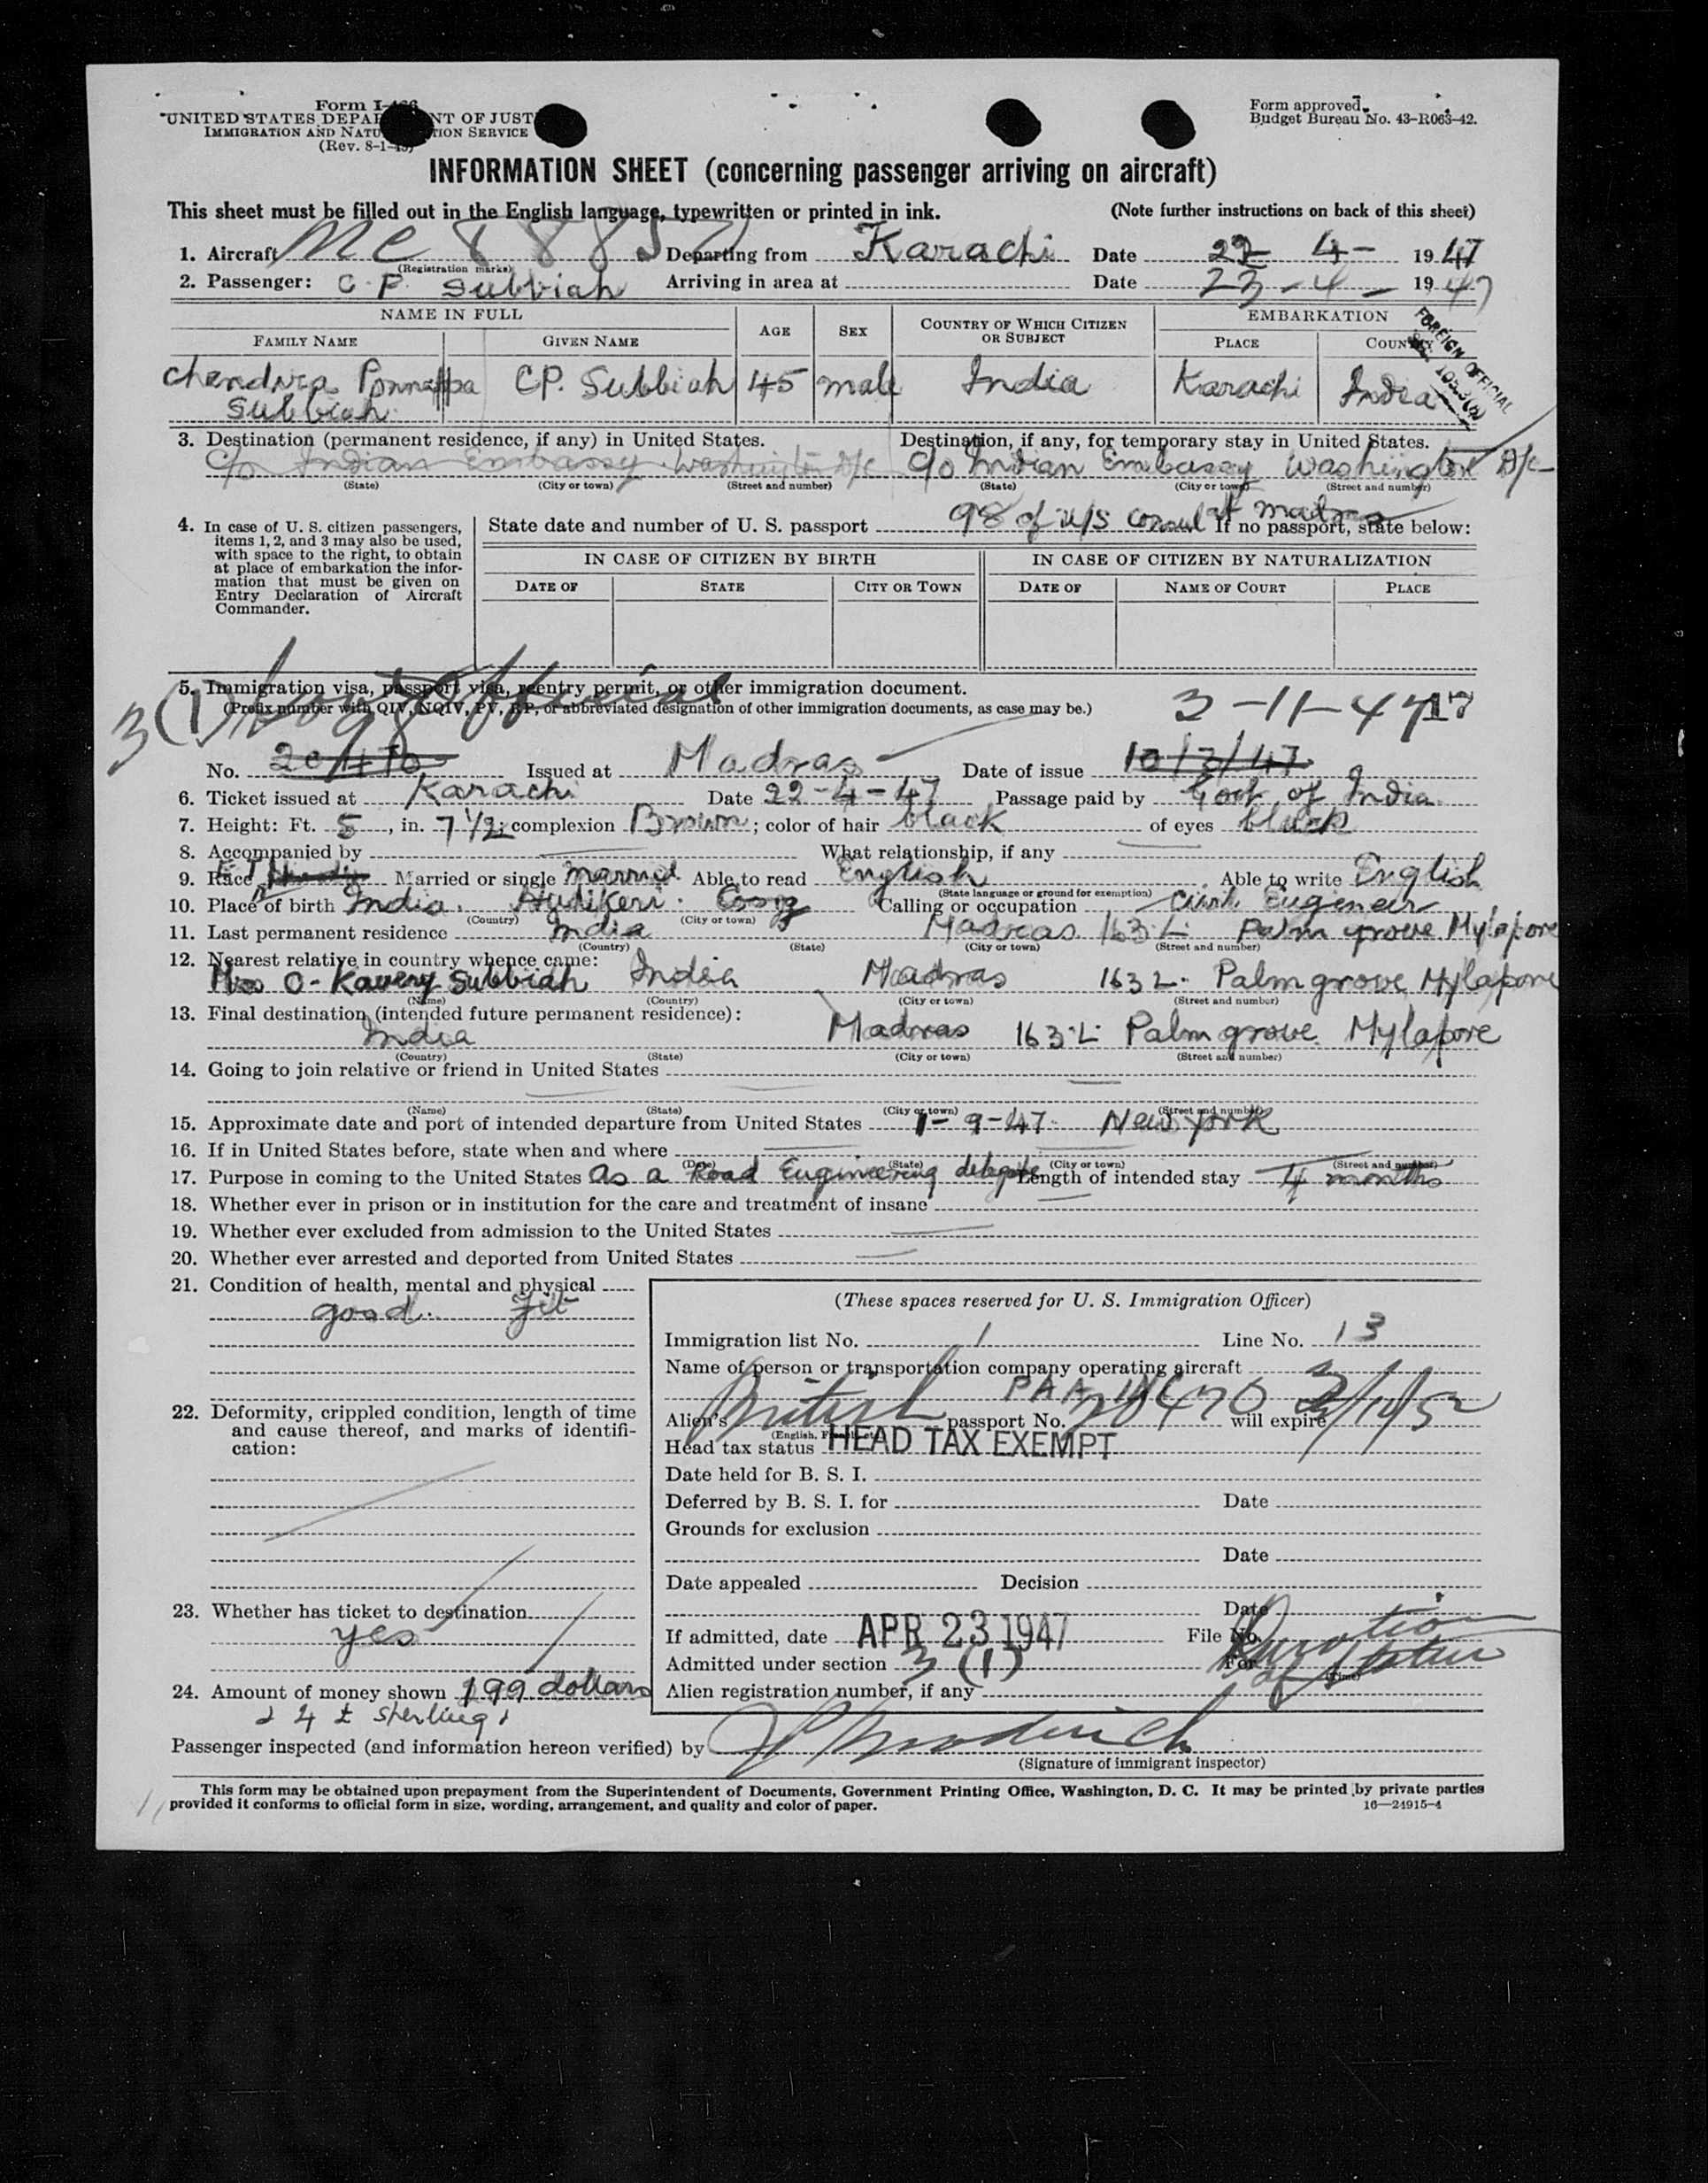 Form I-466
UNITED STATES DEPARTMENT OF JUSTICE
IMMIGRATION AND NATURALIZATION SERVICE
(Rev. 8-1-45)
Form approved.
Budget Bureau No. 43-R063-42.
INFORMATION SHEET (concerning passenger arriving on aircraft)
This sheet must be filled out in the English language, typewritten or printed in ink. (Note further instructions on back of this sheet)
1. Aircraft Departing from Karachi Date 22- 4- 1947
(Registration marks)
2. Passenger: C. P. Subbiah Arriving in area at Date 23-4- 1947
NAME IN FULL AGE SEX COUNTRY OF WHICH CITIZEN OR SUBJECT EMBARKATION
FAMILY NAME GIVEN NAME PLACE COUNTRY
FOREIGN OFFICIAL
Ponnappa Subbiah CP. Subbiah 45 male India Karachi India
3. Destination (permanent residence, if any) in United States. Destination, if any, for temporary stay in United States.
c/o Indian Embassy Washington D/C c/o Indian Embassy Washington D/C
(State) (City or town) (Street and number) (State) (City or town) (Street and number)
4. In case of U. S. citizen passengers, items 1, 2, and 3 may also be used, with space to the right, to obtain at place of embarkation the information that must be given on Entry Declaration of Aircraft Commander.
State date and number of U. S. passport 98 of U/S Consul at Madras If no passport, state below:
IN CASE OF CITIZEN BY BIRTH IN CASE OF CITIZEN BY NATURALIZATION
DATE OF STATE CITY OR TOWN DATE OF NAME OF COURT PLACE
5. Immigration visa, passport visa, reentry permit, or other immigration document.
(Prefix number with QIV, NQIV, PV, RP, or abbreviated designation of other immigration documents, as case may be.)
3(1) Official 98
3-11-47
No. 20470 Issued at Madras Date of issue 10/3/47
6. Ticket issued at Karachi Date 22-4-47 Passage paid by Govt of India
7. Height: Ft. 5, in. 7 1/2; complexion Brown; color of hair black of eyes black
8. Accompanied by What relationship, if any
9. Race E.I. Married or single married Able to read English Able to write English
(State language or ground for exemption)
10. Place of birth India. Calling or occupation Civil Engineer
(Country) (City or town)
11. Last permanent residence India Madras 163 L Palm grove Mylapore
(Country) (State) (City or town) (Street and number)
12. Nearest relative in country whence came:
Mrs O. Kavery Subbiah India Madras 163 L. Palm grove Mylapore
(Name) (Country) (City or town) (Street and number)
13. Final destination (intended future permanent residence):
India Madras 163.L. Palm grove Mylapore
(Country) (State) (City or town) (Street and number)
14. Going to join relative or friend in United States
(Name) (State) (City or town) (Street and number)
15. Approximate date and port of intended departure from United States 1-9-47. New York
16. If in United States before, state when and where
(Date) (State) (City or town) (Street and number)
17. Purpose in coming to the United States As a Road Engineering delegate Length of intended stay 4 months
18. Whether ever in prison or in institution for the care and treatment of insane
19. Whether ever excluded from admission to the United States
20. Whether ever arrested and deported from United States
21. Condition of health, mental and physical
good. Fit
22. Deformity, crippled condition, length of time and cause thereof, and marks of identification:
23. Whether has ticket to destination
yes
24. Amount of money shown 199 dollars
& 4 £ sterling
(These spaces reserved for U. S. Immigration Officer)
Immigration list No. 1 Line No. 13
Name of person or transportation company operating aircraft
PAA
Alien's British passport No. 20470 will expire 3/10/52
Head tax status HEAD TAX EXEMPT
Date held for B. S. I.
Deferred by B. S. I. for Date
Grounds for exclusion
Date
Date appealed Decision
Date
If admitted, date APR 23 1947 File No.
Admitted under section 3(1) For Duration of status
(Time)
Alien registration number, if any
Passenger inspected (and information hereon verified) by
(Signature of immigrant inspector)
This form may be obtained upon prepayment from the Superintendent of Documents, Government Printing Office, Washington, D. C. It may be printed by private parties
provided it conforms to official form in size, wording, arrangement, and quality and color of paper. 16—24915-4